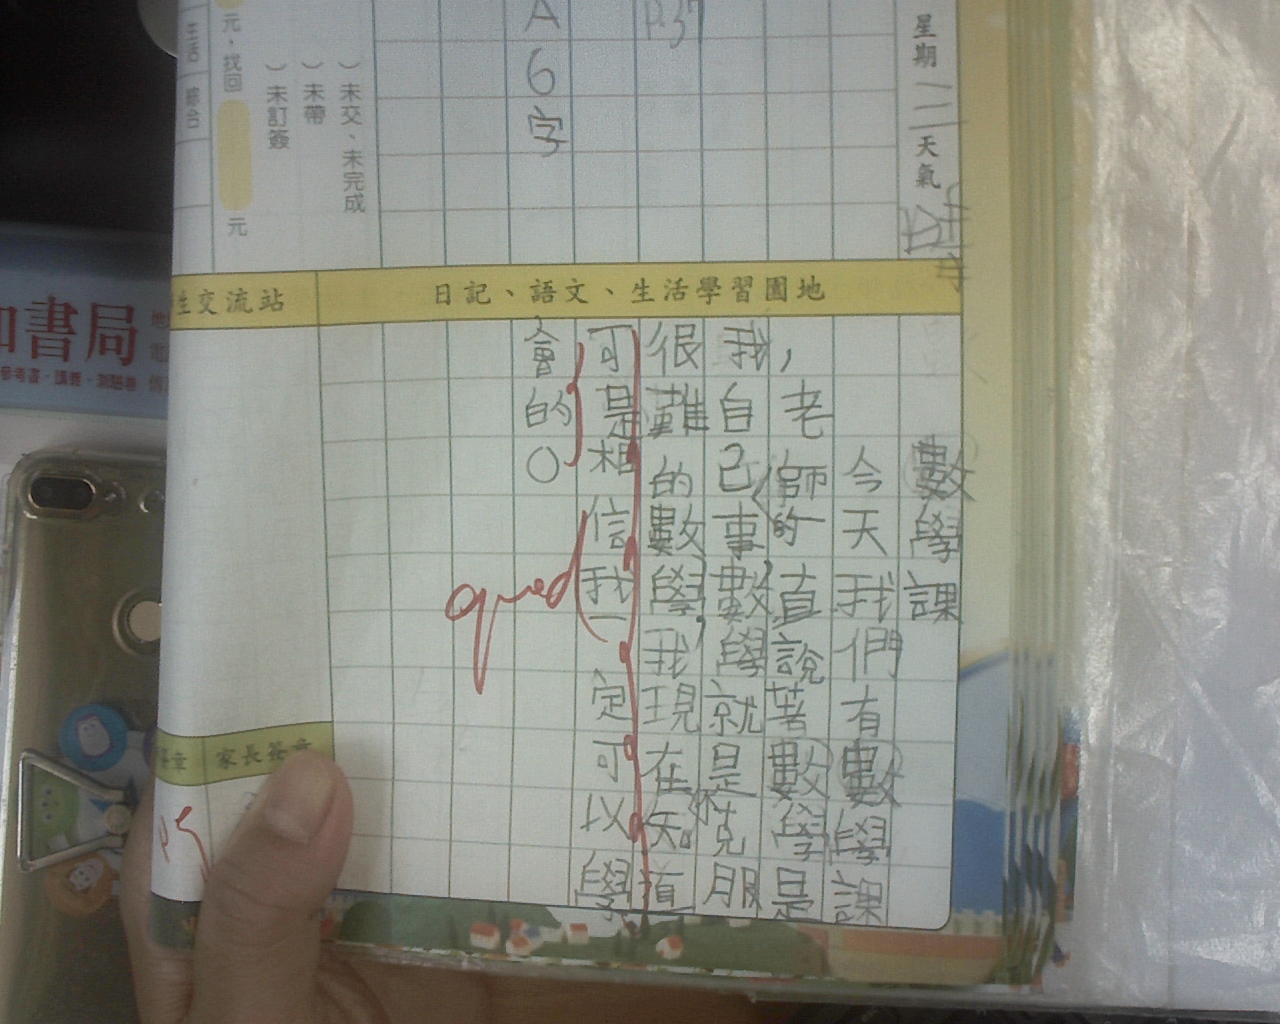 星期二天氣晴
P.37
A6字
)未交、未完成
)未帶
)未訂簽
元,找回 元
生活 綜合
日記、語文、生活學習園地
生交流站
數學課
今天我們有數學課
,老師的直說著數學是
我自己事,數學就是快克服
很難的數學,我現在知道
可是相信我一定可以學
會的。
good
家長簽章
書局
參考書·講義·測驗卷